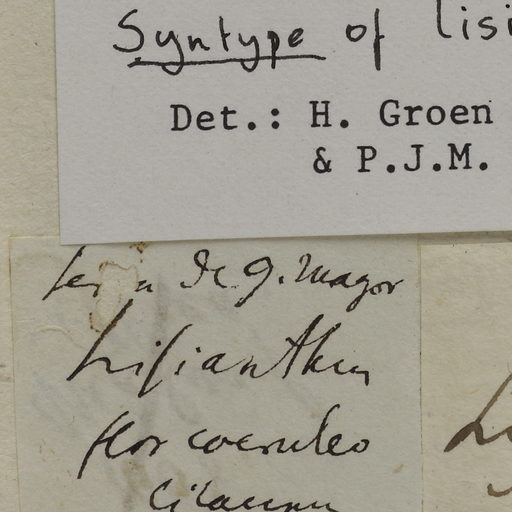 Syntype of lisi
Det.: H. Groen
& P.J.M.
de G. Mayor
Lisianthus
flor coeruleo